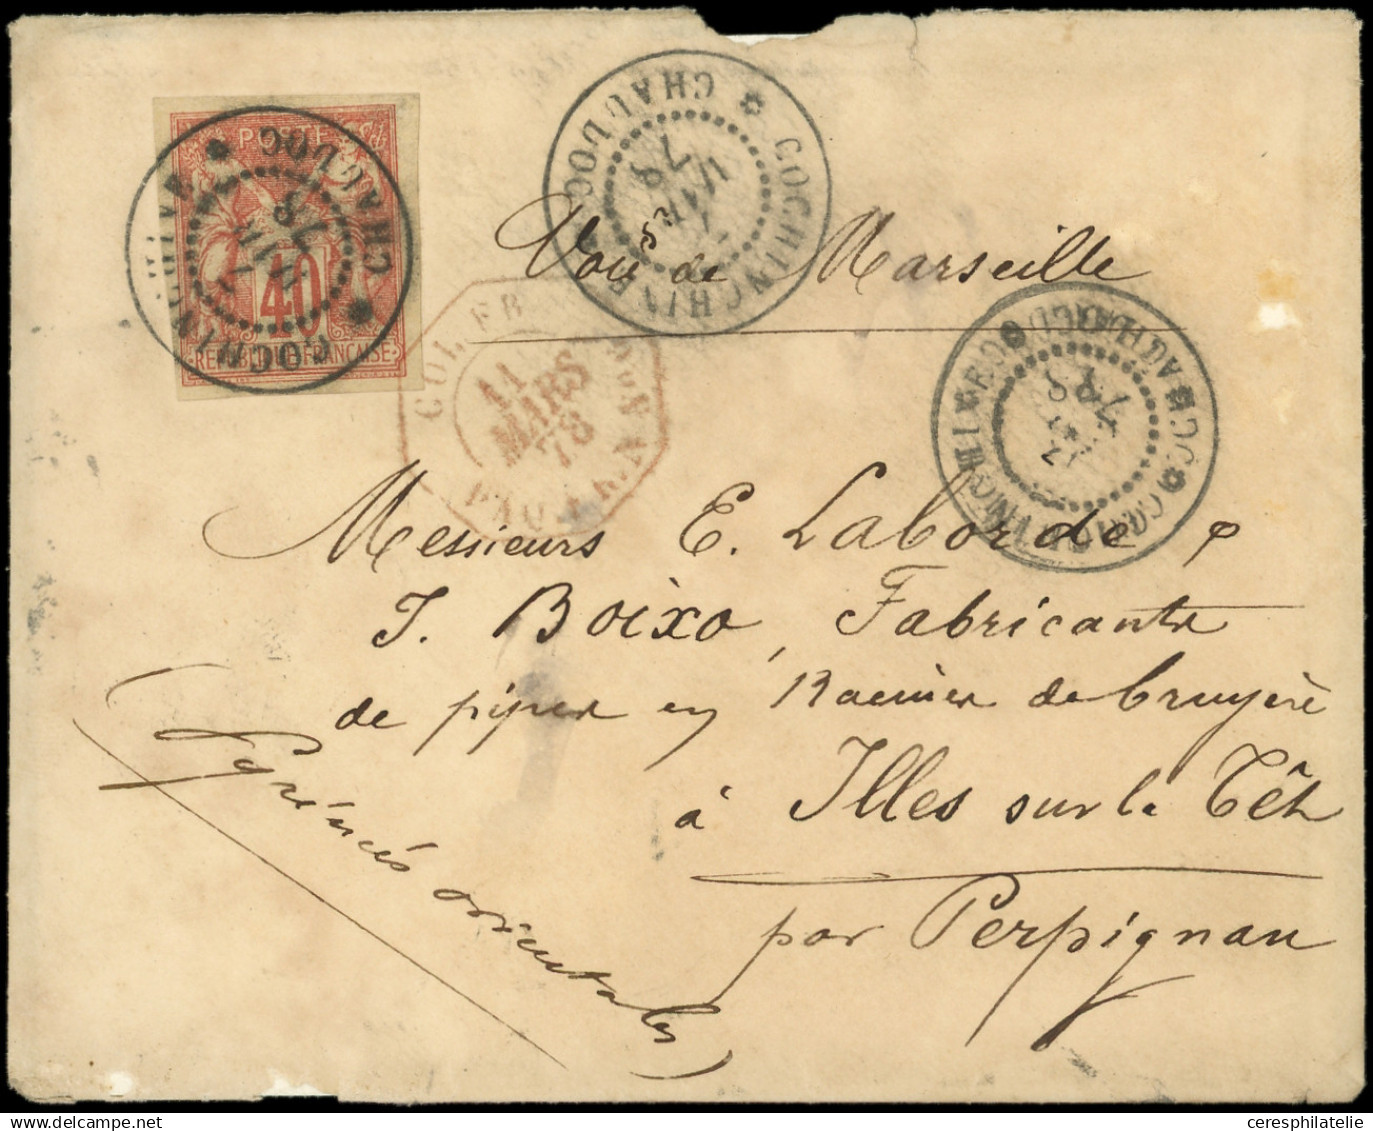 POSTES
40
REPUBLIQUE FRANÇAISE
COCHINCHINE
CHAUDOC
COCHINCHINE
CHAUDOC
MARS
11
MARS
78
Voie de Marseille
Messieurs E. Laborde &
J. Boixo, Fabricants
de pipes en Racines de bruyère
à Illes sur la Têt
par Perpignan
(Pyrénées orientales)
ceresphilatelie